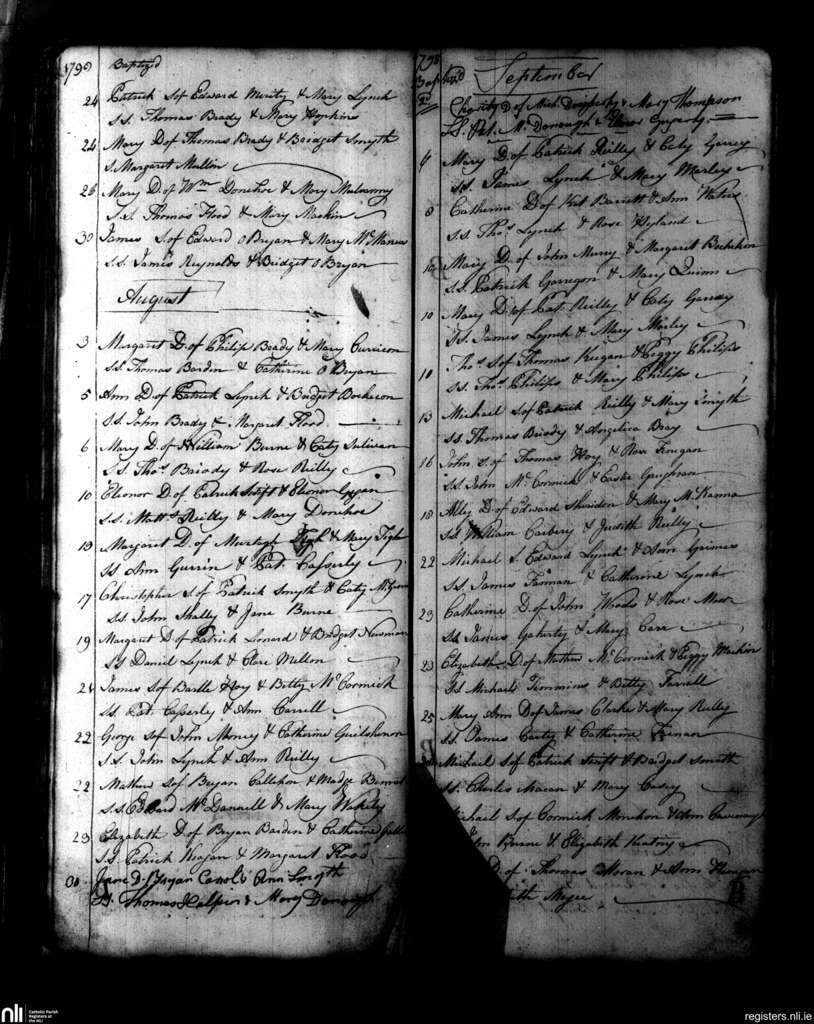 1790 Baptized
24 Patrick S of Edward Merity & Mary Lynch
S.S. Thomas Brady & Mary Hopkins
24 Mary D of Thomas Brady & Bridget Smyth
S. Margaret Mullin
26 Mary D. of Wm Donohoe & Mary Mulvanny
S.S. Thomas Flood & Mary Mackin
30 James S. of Edward O Bryan & Mary Mc Manus
S.S. James Reynolds & Bridget O Bryan
August
3 Margaret D. of Philip Brady & Mary Curricon
S.S. Thomas Bardin & Catherine O Bryan
5 Ann D of Patrick Lynch & Bridget
S.S. John Brady & Margaret Flood
6 Mary D. of William Burne & Caty Sulivan
S.S. Thos Briody & Rose Reilly
10 Elionor D. of Patrick Swift & Elionor
S.S. Matt. Reilly & Mary Donohoe
10 Margaret D. of Murtagh Tigh & Mary Tigh
SS Ann Gurrin & Pat. Casserley
17 Christopher S of Patrick Smyth & Caty
SS John Shally & Jane Burne
19 Margaret D of Patrick Lenard & Bridget Newman
SS Daniel Lynch & Clare Mellon
21 James S of Bartle Hoy & Betty Mc Cormick
SS Pat. Casserley & Ann Carroll
22 George S of John Murry & Catherine
S.S. John Lynch & Ann Reilly
22 Mathew S of Bryan Callehon & Madge
S.S. Edward Mc Dannell & Mary Wakely
29 Elizabeth D of Bryan Barden & Catherine
S.S. Patrick Keagan & Margaret Flood
30 Jane D. Bryan Carol & Ann Smyth
SS. Thomas Halpin & Mary Donough
1790 September
Baptized
2 Charity D of Mich. & Mary Thompson
SS. Pat. Mc Donough &
4 Mary D. of Patrick Reilly & Caty
SS. James Lynch & Mary Marley
8 Catherine D of Pat Barrett & Ann Waters
S.S. Thos Lynch & Rose Hyland
10 Mary D. of John Murry & Margaret
S.S. Patrick Garrigan & Mary Quinn
10 Mary D. of Pat. Reilly & Caty
SS. James Lynch & Mary
10 Thos S of Thomas Keegan & Peggy Philips
SS. Thos Philips & Mary Philips
13 Michael S of Patrick Reilly & Mary Smyth
SS Thomas Briody & Angelica Bray
16 John S. of Thomas Hoy & Rose Finegan
SS. John Mc Cormick & Easter Gaughran
18 Alley D. of Edward Sheridon & Mary Mc Kanna
SS William Carbery & Judith Reilly
22 Michael S. Edward Lynch & Ann Grimes
SS. James Farnan & Catherine Lynch
23 Catherine D. of John Woods & Rose
SS James Gaharty & Mary Carr
23 Elizabeth D. of Mathew Mc Cormick & Peggy Mackin
SS Michael Timmins & Betty Farrell
25 Mary Ann D of James Clarke & Mary Reilly
SS. James Carty & Catherine
Michael S of Patrick Swift & Bridget Smith
SS. Charles Macan & Mary Casey
Michael S of Cormick Monhon & Ann
John Burne & Elizabeth Keatny
D. of Thomas Moran & Ann
nli
Catholic Parish
Registers at
the NLI
registers.nli.ie